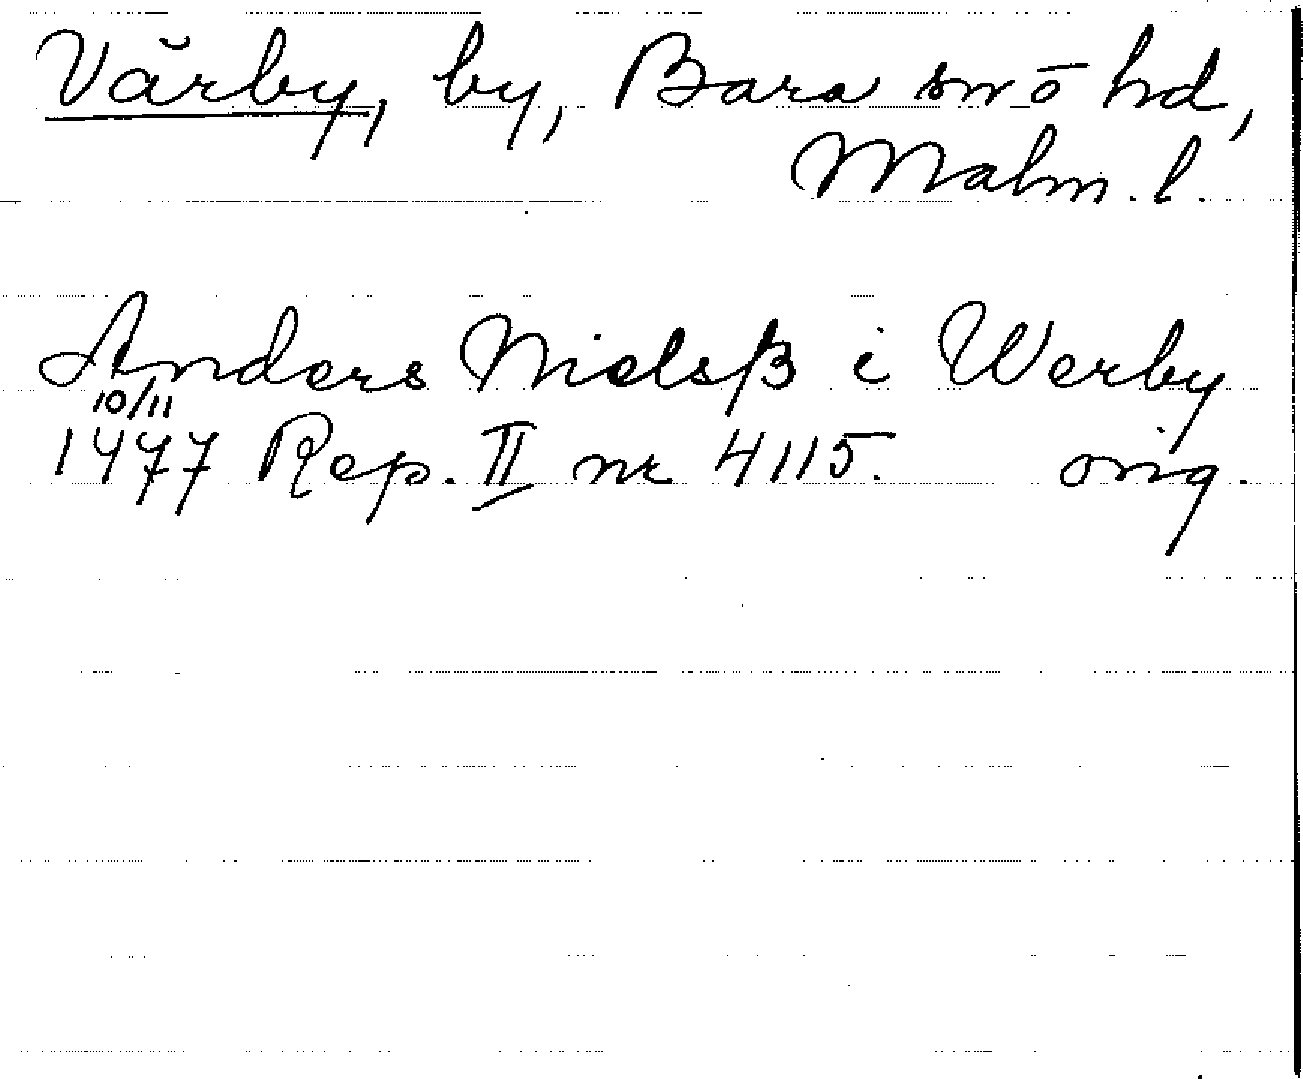 Värby, by, Bara sn o hd,
Malm. l.
Anders Nielsß i Werby
10/11
1477 Rep. II nr 4115. orig.